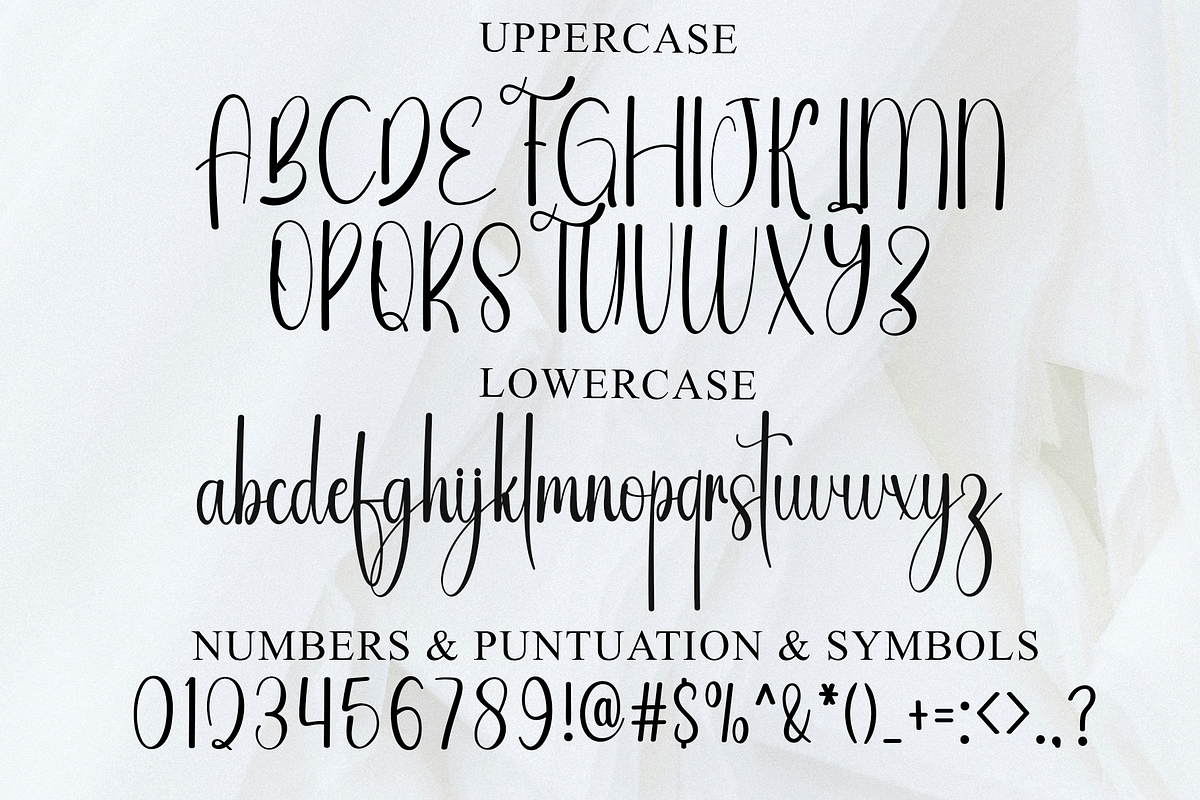 UPPERCASE
ABCDEFGHIJKLMN
OPQRSTUVWXYZ
LOWERCASE
abcdefghijklmnopqrstuvwxyz
NUMBERS & PUNTUATION & SYMBOLS
0123456789!@#$%^&*()_+=:<>.,?